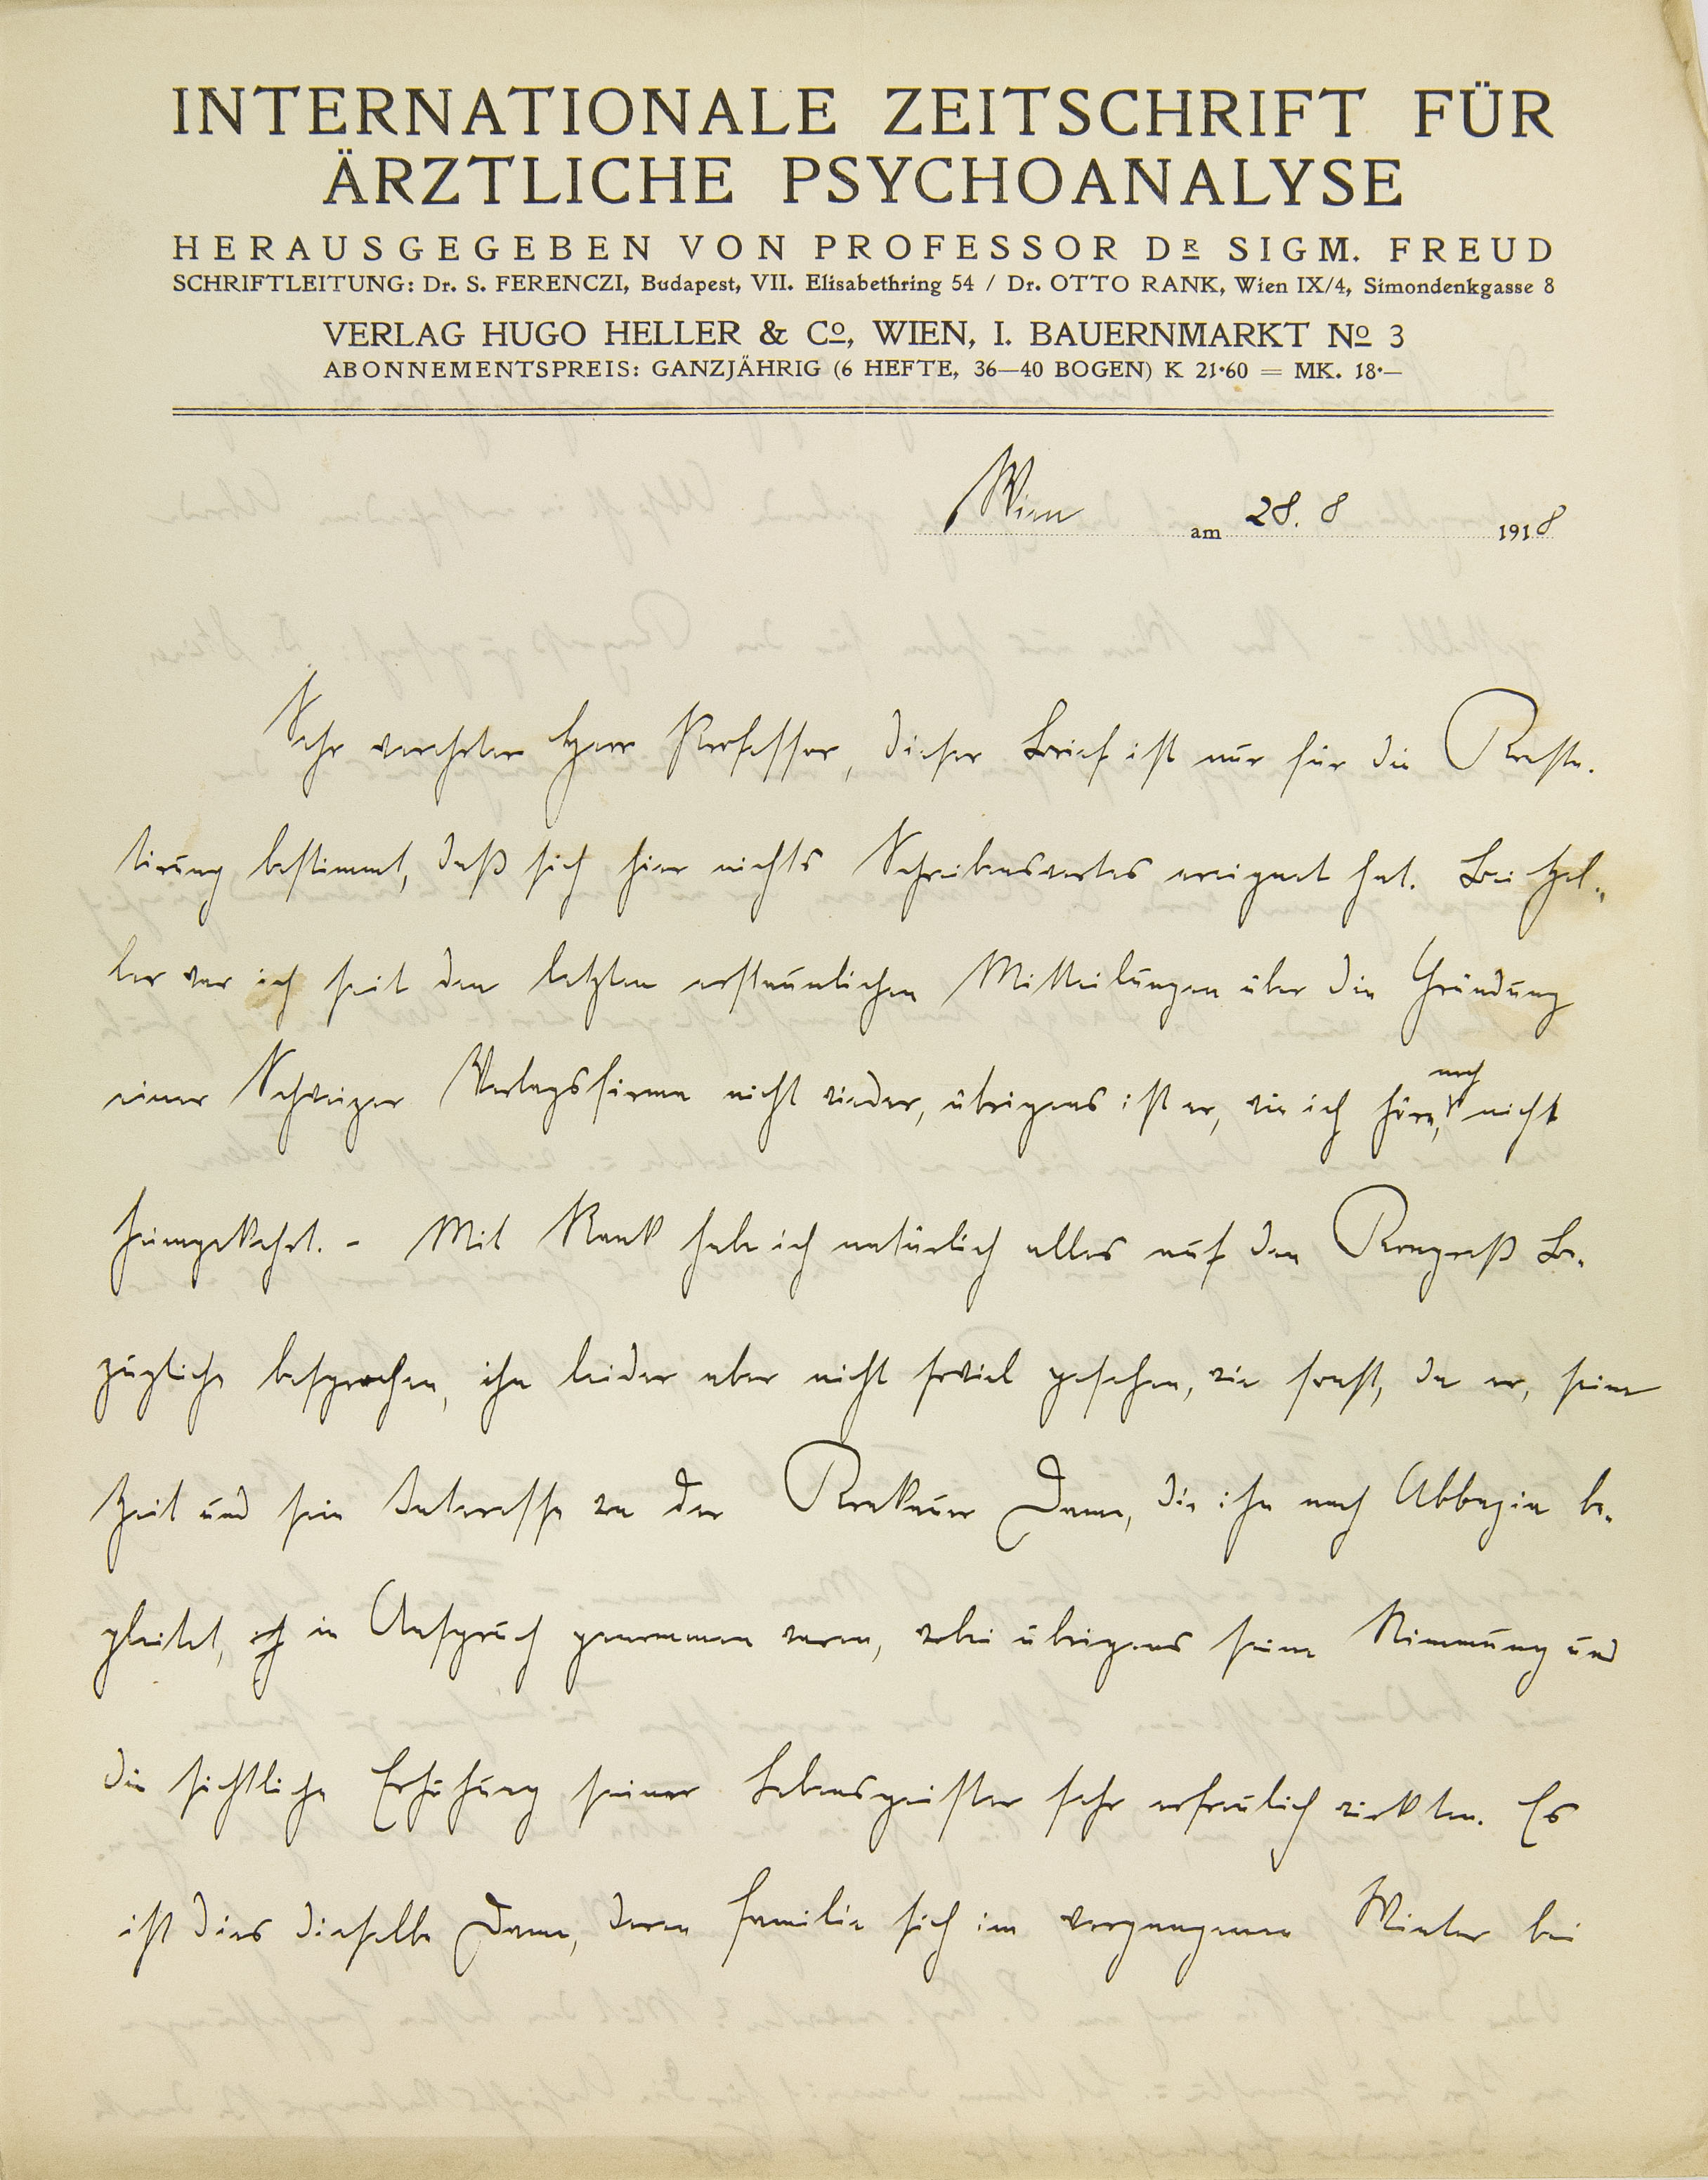 INTERNATIONALE ZEITSCHRIFT FÜR
ÄRZTLICHE PSYCHOANALYSE
HERAUSGEGEBEN VON PROFESSOR DR SIGM. FREUD
SCHRIFTLEITUNG: Dr. S. FERENCZI, Budapest, VII. Elisabethring 54 / Dr. OTTO RANK, Wien IX/4, Simondenkgasse 8
VERLAG HUGO HELLER & Co, WIEN, I. BAUERNMARKT No 3
ABONNEMENTSPREIS: GANZJÄHRIG (6 HEFTE, 36—40 BOGEN) K 21·60 = MK. 18·—
Wien am 28. 8 1918
Sehr verehrter Herr Professor, dieser Brief ist nur für die
bestimmt, daß sich hier nichts Schreibenswertes ereignet hat. Bei Hel-
ler war ich seit den letzten erstaunlichen Mitteilungen über die Gründung
einer Schweizer Verlagsfirma nicht wieder, übrigens ist er, wie ich höre, noch nicht
heimgekehrt. - Mit Rank habe ich natürlich alles auf den Kongreß Be-
zügliche besprochen, ihn leider aber nicht soviel gesehen, wie sonst, da er, seine
Zeit und sein Interesse von der Krakauer Dame, die ihn nach Abbazia be-
gleitet, in Anspruch genommen waren, wobei übrigens seine Stimmung und
die sichtliche Erhöhung seiner Lebensgeister sehr erfreulich wirkten. Es
ist dies dieselbe Dame, deren Familie sich im vergangenen Winter bei